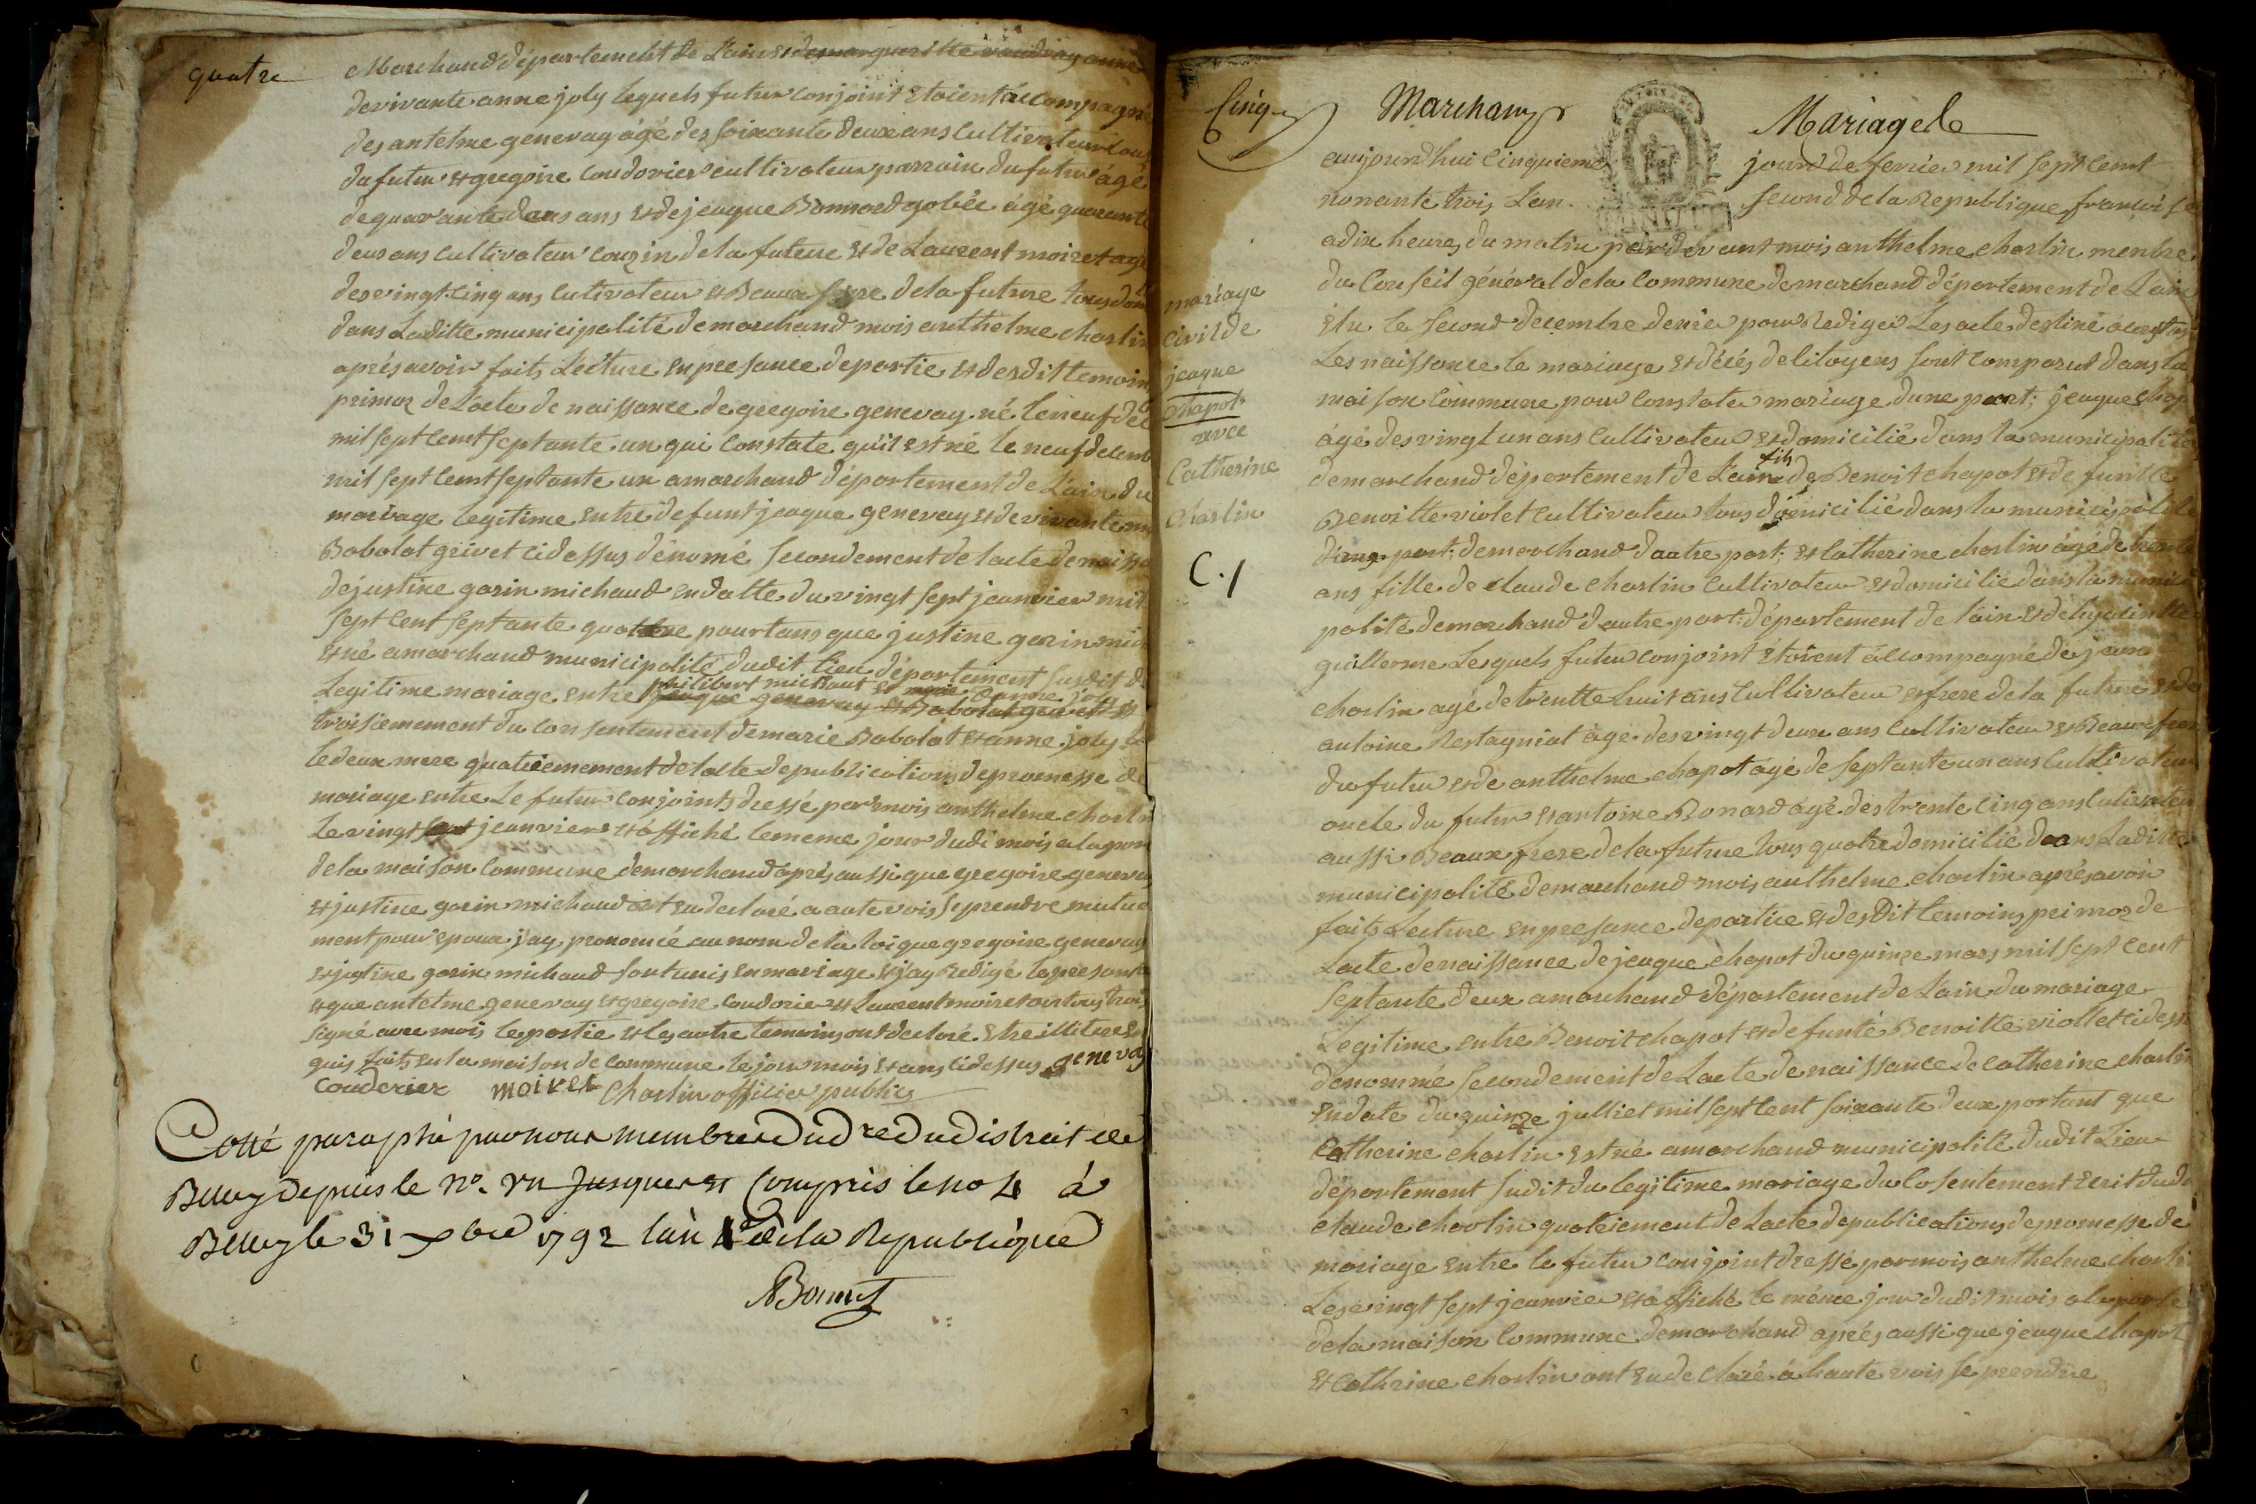 quatre
Marchand département de Lain et de marguerite vaudray anne
de vivante anne joly lequels futur conjoint etoient accompagné
des antelme genevay agé des soixante deux ans cultivateur
du futur et gregoire coudorier cultivateur parrain du futur agé
de quarante deus ans et de jeaque Bonnard gobée agé quarante
deus ans cultivateur couzin de la future et de Laurent moiret agé
des vingt cinq ans cultivateur et Beaux frere de la future tous
dans Laditte municipalité de marchand mois anthelme charlin
aprés avoir faits Lecture en presance de partie et desdit temoin
primoz de Lacte de naissance de gregoire genevay né le neuf
mil sept cent septante un qui constate quil est né le neuf decemb
mil sept cent septante un a marchand département de Lain du
mariage legitime entre defunt jeaque genevay et de vivante
Babolat grivet cidessus dénomé secondement de lacte de naissa
de justine garin michaud en datte du vingt sept jeanvier mil
sept cent septante quattre pourtans que justine garin mic
et né a marchand municipalité dudit lieu département susdit
philibert michaut et anne joly
Legitime mariage entre jeaque genevay et Babolat grivet
troisiemement du consentement de marie Babolat et anne joly
le deux mere quatriemement de lacte de publications de promesse de
mariage entre Le futur conjoints dressé par mois anthelme charlin
Le vingt jeanvier et affiché le meme jour dudi mois a la porte
de la maison commune de marchand aprés aussi que gregoire genevay
et justine garin michaud ont eu declaré a aute vois se prendre mutue
ment pour epoux jay prononcé au nom de la loi que gregoire genevay
et justine garin michaud sont unis en mariage et jay redigé la presant
et que antelme genevay et gregoire coudorier et Laurent moiret ont tous trois
signé avec mois le partie et les autre temoins ont declaré etre illitere
quis faits en la maison de commune le jour mois et ans cidessus genevay
Couderier moiret Charlin officier public
Cotté paraphé par nous membre du dre du district de
Belley depuis le no. un jusques et compris le no 4 à
Belley le 31 xbre 1792 lan 1er de la Republique
Bonnet
Cinq
Marchand
Mariage de
aujourd'hui cinquieme jour de fevrie mil sept cent
nonante trois Lan second de la Republique françoise
a dix heures du matin par devant mois anthelme charlin menbre
du Conseil général de la commune de marchand département de Lain
élu le second decembre denier pour rediger Les acte destiné a constater
Les naissance le mariage et décés de citoyens sont comparut dans la
maison commune pour constater mariage dune part; jeaque chapot
agé des vingt un ans cultivateur et domicilié dans la municipalité
de marchand département de Lain fils de Benoit chapot et de funtte
Benoitte violet cultivateur tous domicilié dans la municipalité
de marchand dautre part; et catherine charlin agé de trente
ans fille de claude charlin cultivateur et domicilié dans la munici
palité de marchand dautre part département de lain et de
guillerme Lesquels futur conjoint étoient accompagné de jean
charlin agé de trentte huit ans cultivateur et frere de la future et de
antoine Restagniat agé des vingt deux ans cultivateur et Beaux frere
du futur et de anthelme chapot agé de septante un ans cultivateur
oncle du futur et antoine Bonard agé des trente cinq ans cultivateur
aussi Beaux frere de la future tous quatre domicilié dans Laditte
municipalité de marchand mois anthelme charlin aprés avoir
faits Lecture en presance de partiee et desdit temoins primoz de
Lacte de naissance de jeaque chapot du quinze mars mil sept cent
septante deux a marchand département de Lain du mariage
Legitime entre Benoit chapot et defunté Benoitte viollet cidessu
dénommé secondement de Lacte de naissance de catherine charlin
en date du quinze julliet mil sept cent soixante deux portant que
Catherine charlin est né a marchand municipalité dudit Lieu
département sudit du legitime mariage du cosentement ecrit dudi
claude charlin quatriement de Lacte de publications de promesse de
mariage entre le futur conjoint dressé par mois anthelme charlin
Les vingt sept jeanvier et affiché le même jour dudit mois a la porte
de la maison commune de marchand aprés aussi que jeaque chapot
et cathrine charlin ont eu declaré a haute vois se prendre
mariage
civil de
jeaque
chapot
avec
Catherine
charlin
C./